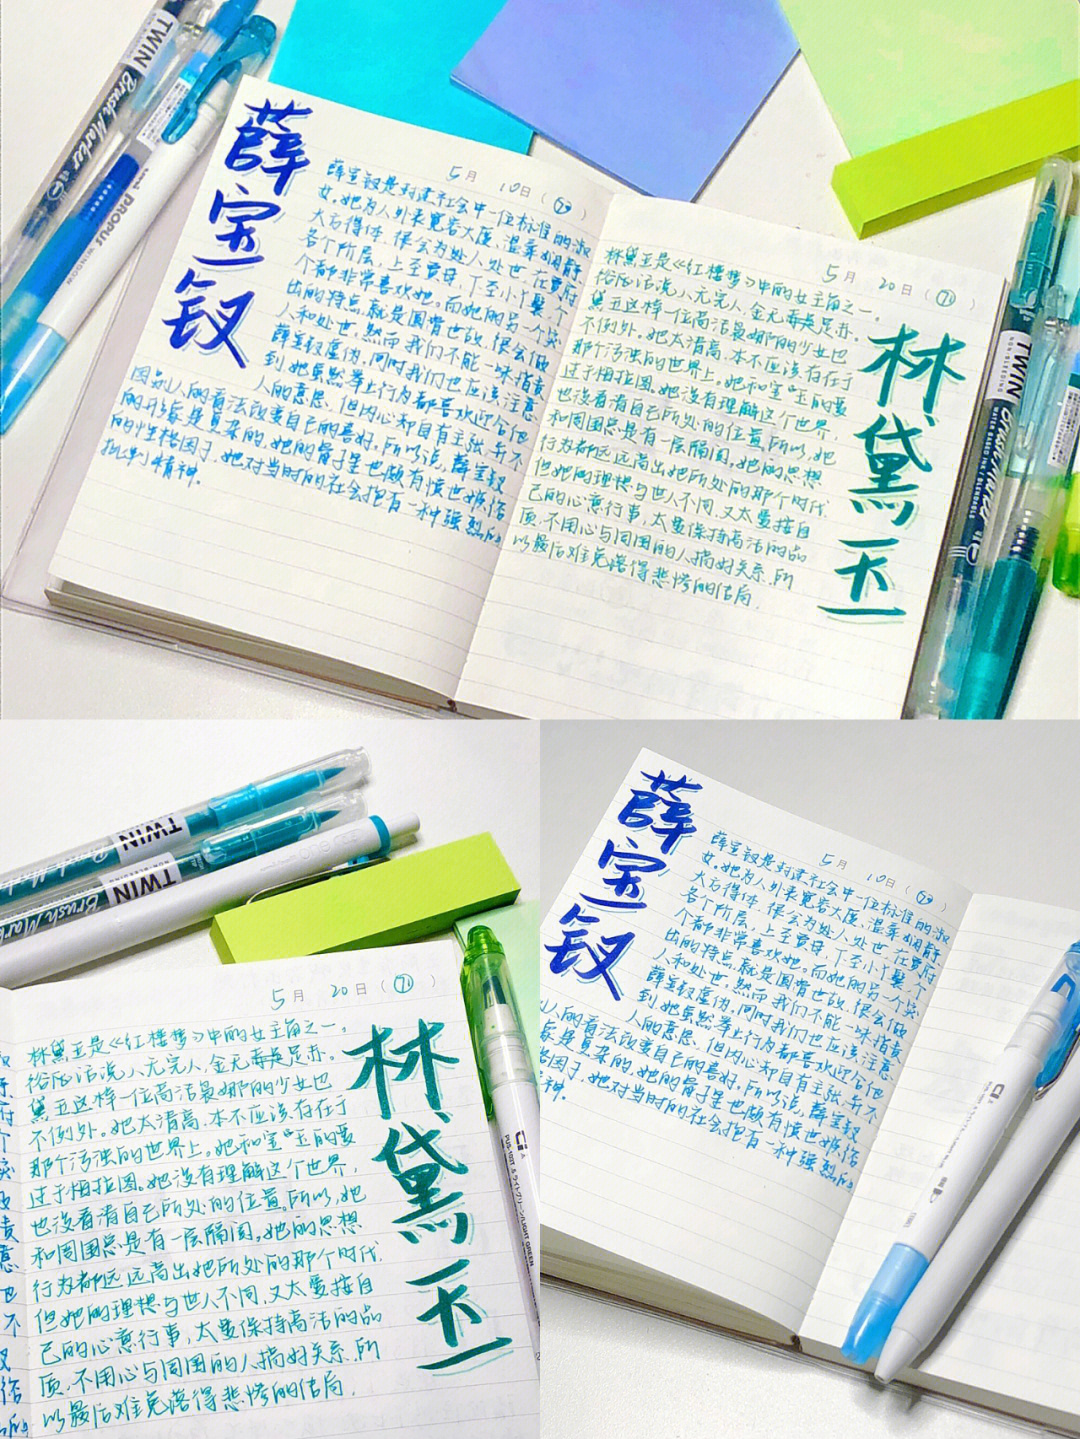 薛宝钗
5月 10日（79）
薛宝钗是封建社会中一位标准的淑
女。她为人外表宽容大度、温柔娴静
大方得体，很会为处人处世，在贾府
各个阶层，上至贾母，下至小丫鬟，个
个都非常喜欢她。而她的另一个突
出的特点就是圆骨也故，很会做
人和处世，然而我们不能一味指责
薛宝钗虚伪，同时我们也应该注意
到她虽然举止行为都喜欢迎合他
人的意思，但内心却自有主张，并不
因别人的看法改变自己的喜好。所以说，薛宝钗
的形象是复杂的，她的骨子里也颇有愤世嫉俗
的性格因子，她对当时的社会抱有一种强烈的
批判精神。
5月 20日（71）
林黛玉
林黛玉是《红楼梦》中的女主角之一。
俗话说人无完人，金无毒美足赤。
黛玉这样一位高洁袅娜的少女也
不例外。她太清高，本不应该存在于
那个污浊的世界上。她和宝玉的爱
过于相拉图。她没有理解这个世界，
也没看清自己所处的位置。所以，她
和周围总是有一层隔阂。她的思想
行为都远远高出她所处的那个时代，
但她的理想与世人不同，又太爱按自
己的心意行事，太要保持高洁的品
质，不用心与周围的人搞好关系，所
以最后难免落得悲惨的结局。
TWIN
Brush Marker
uni PROPUS WINDOW
TWIN
NON-BLEEDING
Brush Marker
TWIN
Brush Marke
TWIN
Brush Mark
5月 20日（71）
林黛玉
林黛玉是《红楼梦》中的女主角之一。
俗话说人无完人，金无毒美足赤。
黛玉这样一位高洁袅娜的少女也
不例外。她太清高，本不应该存在于
那个污浊的世界上。她和宝玉的爱
过于相拉图。她没有理解这个世界，
也没看清自己所处的位置。所以，她
和周围总是有一层隔阂。她的思想
行为都远远高出她所处的那个时代，
但她的理想与世人不同，又太爱按自
己的心意行事，太要保持高洁的品
质，不用心与周围的人搞好关系，所
以最后难免落得悲惨的结局。
PUS-102T & ライトグリーン/LIGHT GREEN
薛宝钗
5月 10日（79）
薛宝钗是封建社会中一位标准的淑
女。她为人外表宽容大度、温柔娴静
大方得体，很会为处人处世，在贾府
各个阶层，上至贾母，下至小丫鬟，个
个都非常喜欢她。而她的另一个突
出的特点就是圆骨也故，很会做
人和处世，然而我们不能一味指责
薛宝钗虚伪，同时我们也应该注意
到她虽然举止行为都喜欢迎合他
人的意思，但内心却自有主张，并不
人的看法改变自己的喜好。所以说，薛宝钗
象是复杂的，她的骨子里也颇有愤世嫉俗
格因子，她对当时的社会抱有一种强烈的
神。